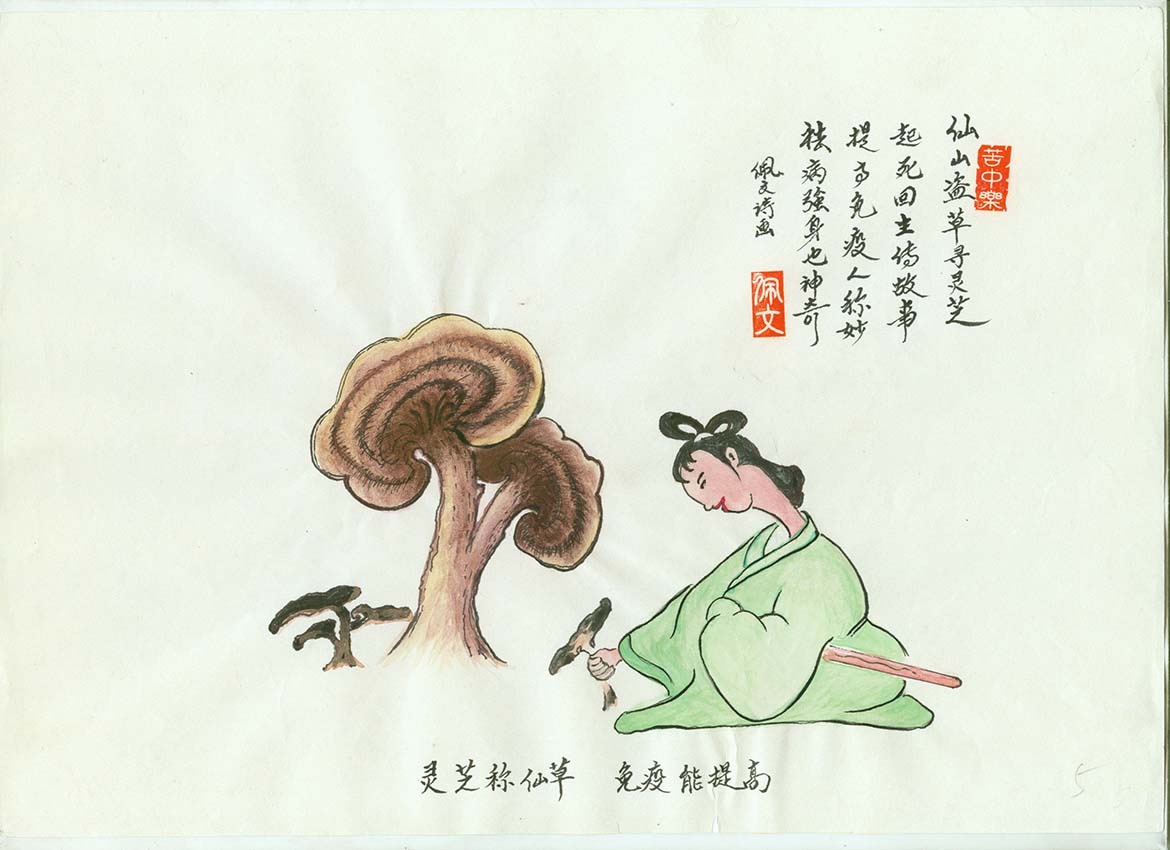 苦中樂
仙山盗草寻灵芝
起死回生传故事
提高免疫人称妙
祛病強身也神奇
佩文诗画
佩文
灵芝称仙草　免疫能提高
5